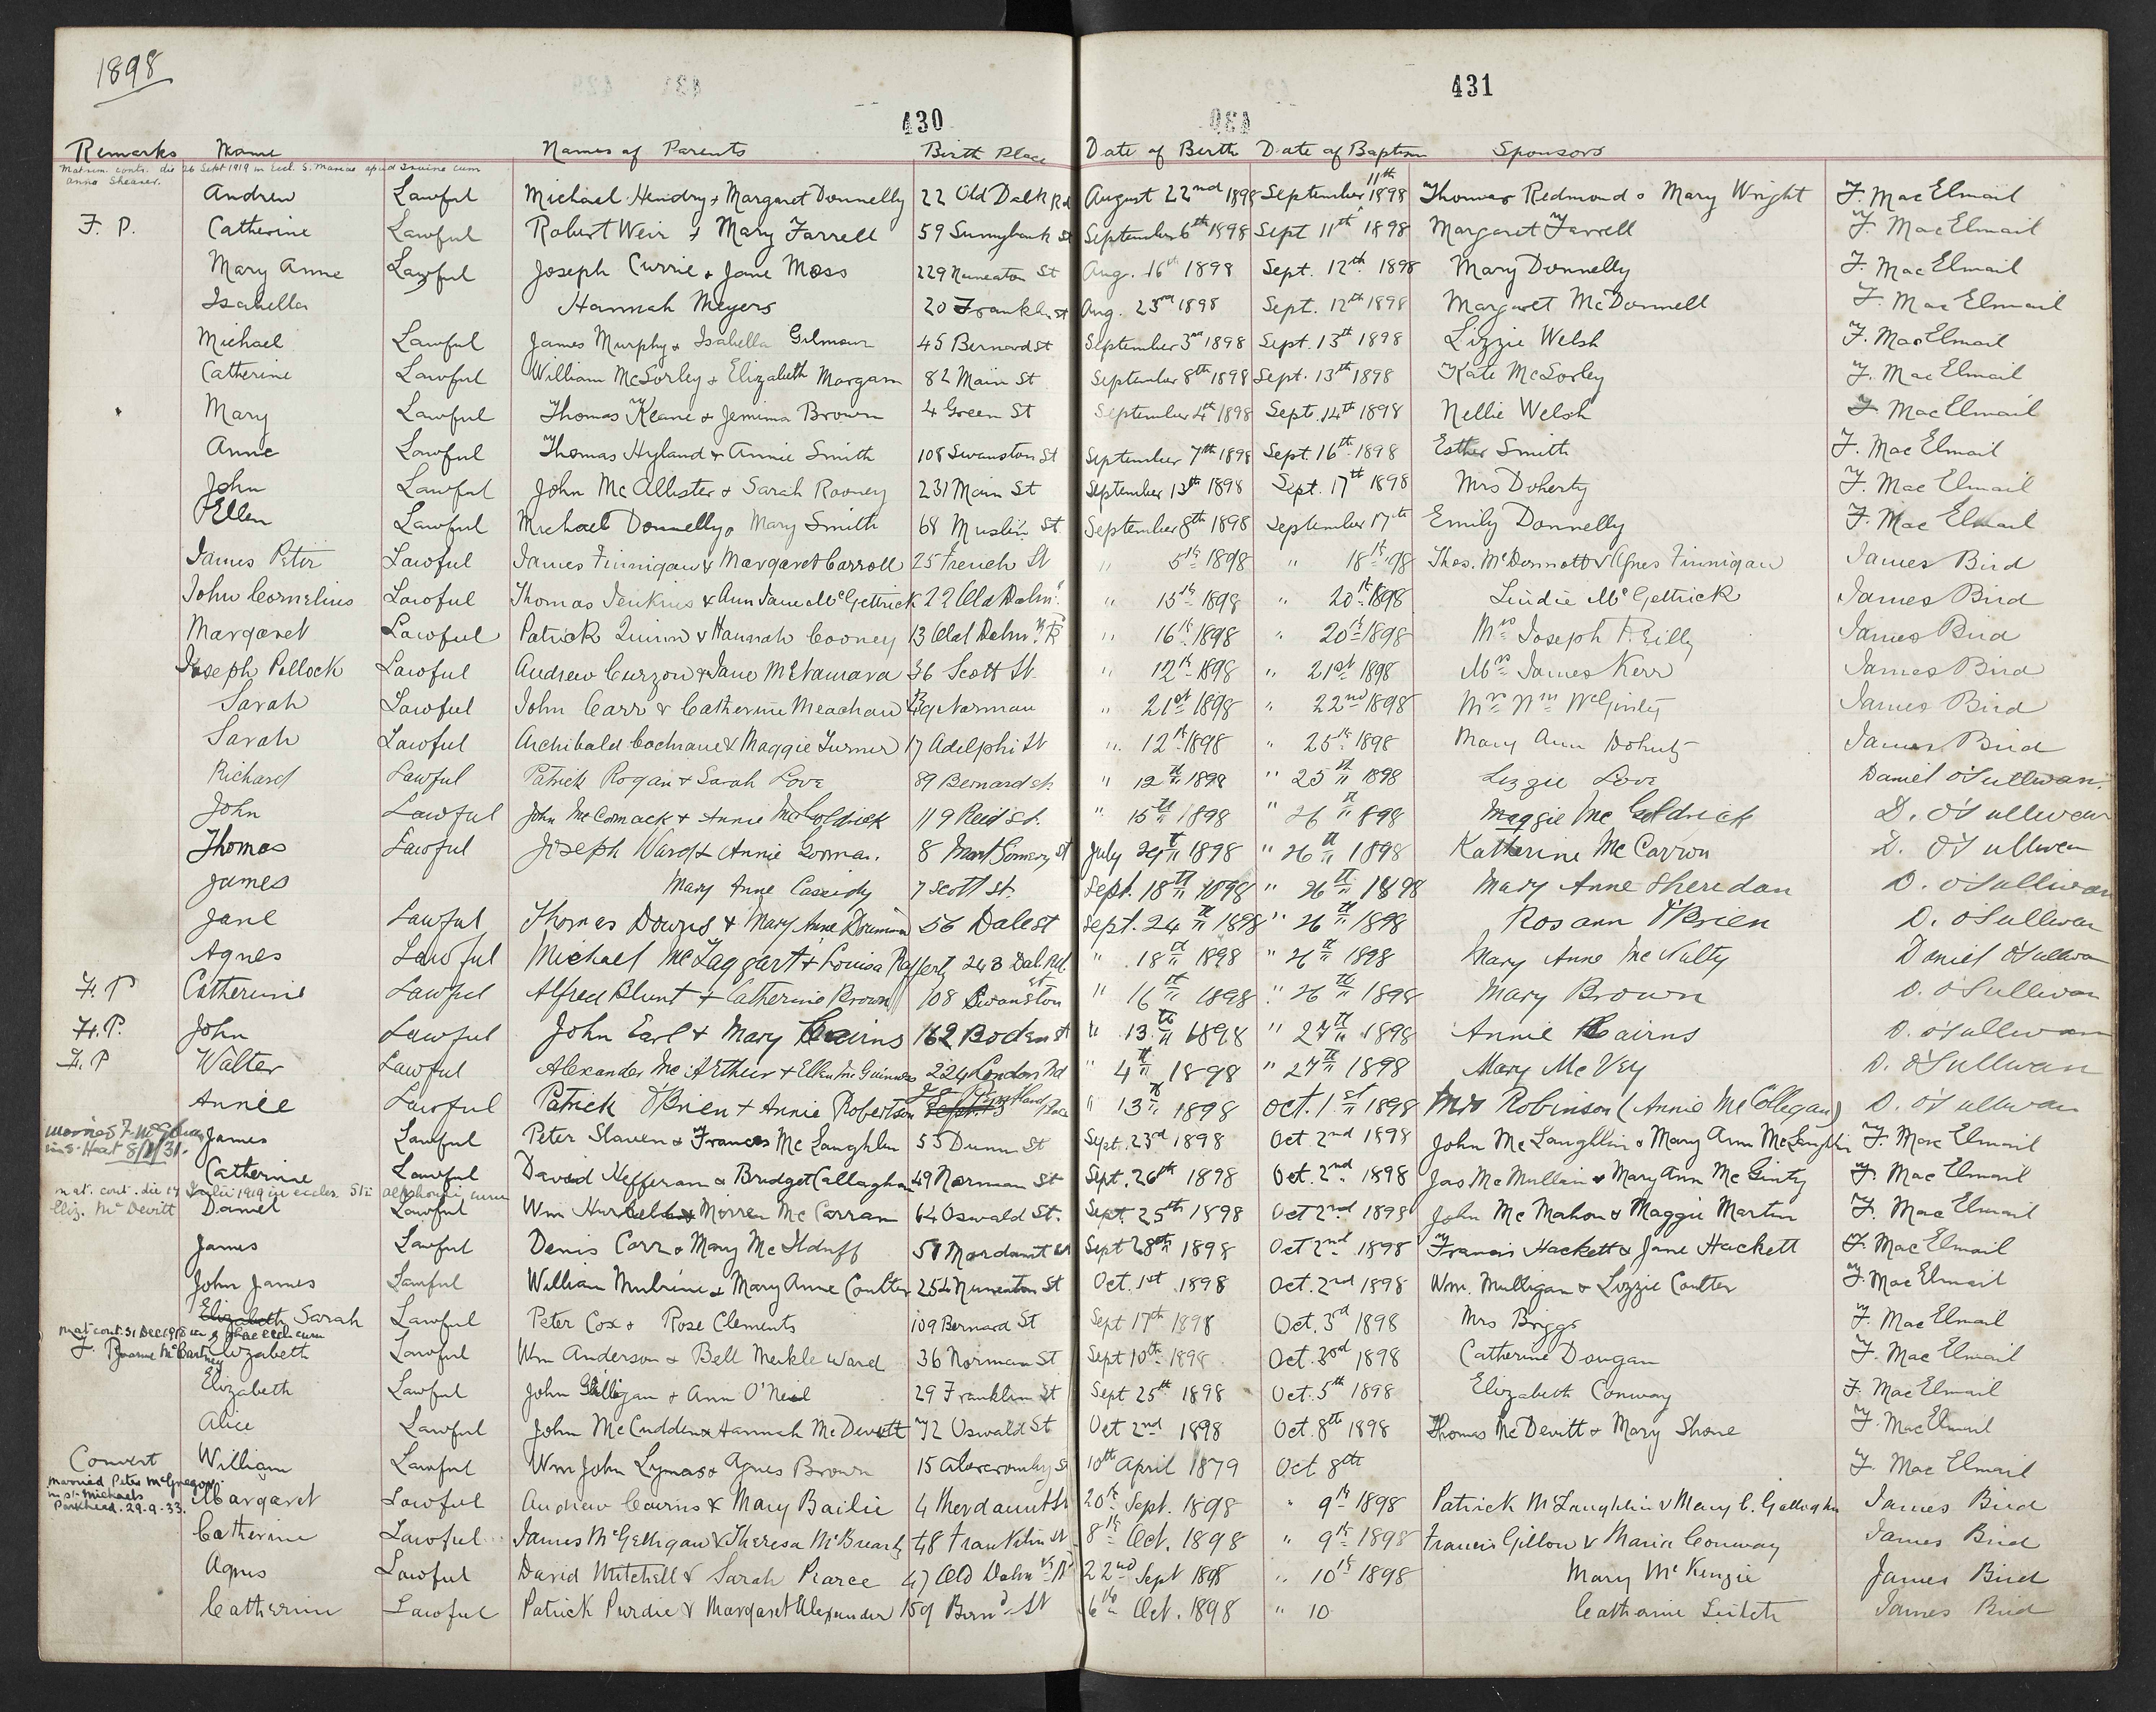 1898
430
431
Remarks Name Names of Parents Birth Place Date of Birth Date of Baptism Sponsors
Matrim. contr. die 26 Sept 1919 in Eccl. S. Mariae apud Irvine cum
Anna Shearer.
Andrew Lawful Michael Hendry & Margaret Donnelly 22 Old Dalk Rd August 22nd 1898 September 11th 1898 Thomas Redmond & Mary Wright F. MacElmail
F. P. Catherine Lawful Robert Weir & Mary Farrell 59 Sunnybank St September 6th 1898 Sept 11th 1898 Margaret Farrell F. MacElmail
Mary Anne Lawful Joseph Currie & Jane Moss 229 Nuneaton St Aug. 16th 1898 Sept. 12th 1898 Mary Donnelly F. MacElmail
Isabella Hannah Meyers 20 Franklin St Aug. 23rd 1898 Sept. 12th 1898 Margaret McDonnell F. MacElmail
Michael Lawful James Murphy & Isabella Gilmour 45 Bernard St September 3rd 1898 Sept. 13th 1898 Lizzie Welsh F. MacElmail
Catherine Lawful William McSorley & Elizabeth Morgan 82 Main St September 8th 1898 Sept. 13th 1898 Kate McSorley F. MacElmail
Mary Lawful Thomas Keane & Jemima Brown 4 Green St September 4th 1898 Sept. 14th 1898 Nellie Welsh F. MacElmail
Anne Lawful Thomas Hyland & Annie Smith 108 Swanston St September 7th 1898 Sept. 16th 1898 Esther Smith F. MacElmail
John Lawful John McAllister & Sarah Rooney 231 Main St September 13th 1898 Sept. 17th 1898 Mrs Doherty F. MacElmail
Ellen Lawful Michael Donnelly & Mary Smith 68 Muslin St September 8th 1898 September 17th Emily Donnelly F. MacElmail
James Peter Lawful James Finnigan & Margaret Carroll 25 French St " 5th 1898 " 18th 98 Thos. McDermott & Agnes Finnigan James Bird
John Cornelius Lawful Thomas Jenkins & Ann Jane McGettrick 22 Old Dalm. " 15th 1898 " 20th 1898 Lindie McGettrick James Bird
Margaret Lawful Patrick Quinn & Hannah Cooney 13 Old Dalm. Rd " 16th 1898 " 20th 1898 Mrs Joseph Reilly James Bird
Joseph Pollock Lawful Andrew Curzon & Jane McNamara 36 Scott St " 12th 1898 " 21st 1898 Mrs James Kerr James Bird
Sarah Lawful John Carr & Catherine Meachan Norman " 21st 1898 " 22nd 1898 Mrs Wm McGinty James Bird
Sarah Lawful Archibald Cochrane & Maggie Turner 17 Adelphi St " 12th 1898 " 25th 1898 Mary Ann Doherty James Bird
Richard Lawful Patrick Rogan & Sarah Love 89 Bernard st " 12th 1898 " 25th 1898 Lizzie Love Daniel O'Sullivan
John Lawful John McComack & Annie McGoldrick 119 Reid St. " 15th 1898 " 26th 898 Maggie McGoldrick D. O'Sullivan
Thomas Lawful Joseph Ward & Annie Gorman. 8 Montgomery St July 29th 1898 " 26th 1898 Katherine McCarron D. O'Sullivan
James Mary Anne Cassidy 7 Scott St. Sept. 18th 1898 " 26th 1898 Mary Anne Sheridan D. O'Sullivan
Jane Lawful Thomas Downs & Mary Anne 56 Dale st Sept. 24th 1898 " 26th 1898 Rosann O'Brien D. O'Sullivan
Agnes Lawful Michael McTaggart & Louisa Rafferty 243 Dal. Rd. " 18th 1898 " 26th 1898 Mary Anne McNulty Daniel O'Sullivan
F. P. Catherine Lawful Alfred Blunt & Catherine Brown 108 Swanston St " 16th 1898 " 26th 1898 Mary Brown D. O'Sullivan
F. P. John Lawful John Earl & Mary Cairns 162 Boden st " 13th 1898 " 27th 1898 Annie Cairns D. O'Sullivan
F. P Walter Lawful Alexander McArthur & Ellen McGuinness 224 London Rd " 4th 1898 " 27th 1898 Mary McVey D. O'Sullivan
Annie Lawful Patrick O'Brien & Annie Robertson Place " 13th 1898 Oct. 1st 1898 Mrs Robinson (Annie McCollegan) D. O'Sullivan
James Lawful Peter Slaven & Frances McLaughlin 53 Dunn St Sept. 23rd 1898 Oct 2nd 1898 John McLaughlin & Mary Ann McLaughlin F. MacElmail
8/1/31.
Catherine Lawful David Hefferan & Bridget Callaghan 49 Norman St Sept. 26th 1898 Oct. 2nd 1898 Jas McMullin & Mary Ann McGinty F. MacElmail
mat. cont. die 17 Julii 1919 in eccles. Sti Alphonsi cum
Eliz. McDevitt Daniel Lawful Wm & Morren McCarran 64 Oswald St. Sept. 25th 1898 Oct 2nd 1898 John McMahon & Maggie Martin F. MacElmail
James Lawful Denis Carr & Mary McIlduff 57 Mordaunt St Sept 28th 1898 Oct 2nd 1898 Francis Hackett & Jane Hackett F. MacElmail
John James Lawful William Mulrine & Mary Anne Coulter 254 Nuneaton St Oct. 1st 1898 Oct. 2nd 1898 Wm. Mulligan & Lizzie Coulter F. MacElmail
Elizabeth Sarah Lawful Peter Cox & Rose Clements 109 Bernard St Sept 17th 1898 Oct. 3rd 1898 Mrs Briggs F. MacElmail
Elizabeth Lawful Wm Anderson & Bell Meikle Ward 36 Norman St Sept 10th 1898 Oct. 3rd 1898 Catherine Dougan F. MacElmail
Elizabeth Lawful John Gilligan & Ann O'Neil 29 Franklin St Sept 25th 1898 Oct. 5th 1898 Elizabeth Conway F. MacElmail
Alice Lawful John McCudden & Hannah McDevitt 72 Oswald St Oct 2nd 1898 Oct. 8th 1898 Thomas McDevitt & Mary Shone F. MacElmail
Convert William Lawful Wm John Lymas & Agnes Brown 15 Abercromby St 10th April 1879 Oct. 8th F. MacElmail
married Peter McGregor
in St. Michaels
Parkhead. 29.9.33.
Margaret Lawful Andrew Cairns & Mary Bailie 4 Mordaunt St 20th Sept. 1898 " 9th 1898 Patrick McLaughlin & Mary C. Gallagher James Bird
Catherine Lawful James McGettigan & Theresa McBrearty 48 Franklin St 8th Oct. 1898 " 9th 1898 Francis Gillon & Maria Conway James Bird
Agnes Lawful David Mitchell & Sarah Pearce 47 Old Dalm. Rd 22nd Sept 1898 " 10th 1898 Mary McKenzie James Bird
Catherine Lawful Patrick Purdie & Margaret Alexander 159 Bernd. St 6th Oct. 1898 " 10 Catherine Leitch James Bird